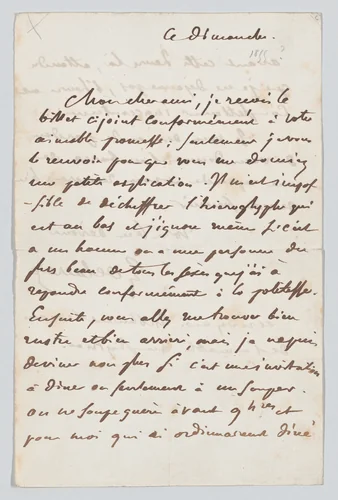 Ce Dimanche.
1855
Mon cher ami, je reçois le
billet cijoint conformément à votre
aimable promesse; seulement je vous
le renvoie pour que vous me donniez
une petite explication. Il m'est impos-
-sible de déchiffrer l'hieroglyphe qui
est au bas et j'ignore meme si c'est
a un homme ou a une personne du
plus beau de tous les sexes que j'ai à
repondre conformément à la politesse.
Ensuite, vous allez me trouver bien
rustre et bien arriéré, mais je ne puis
deviner non plus si c'est une invitation
à diner ou seulement à un souper.
on ne soupe guère avant 9 hres et
pour moi qui ai ordinairement diné